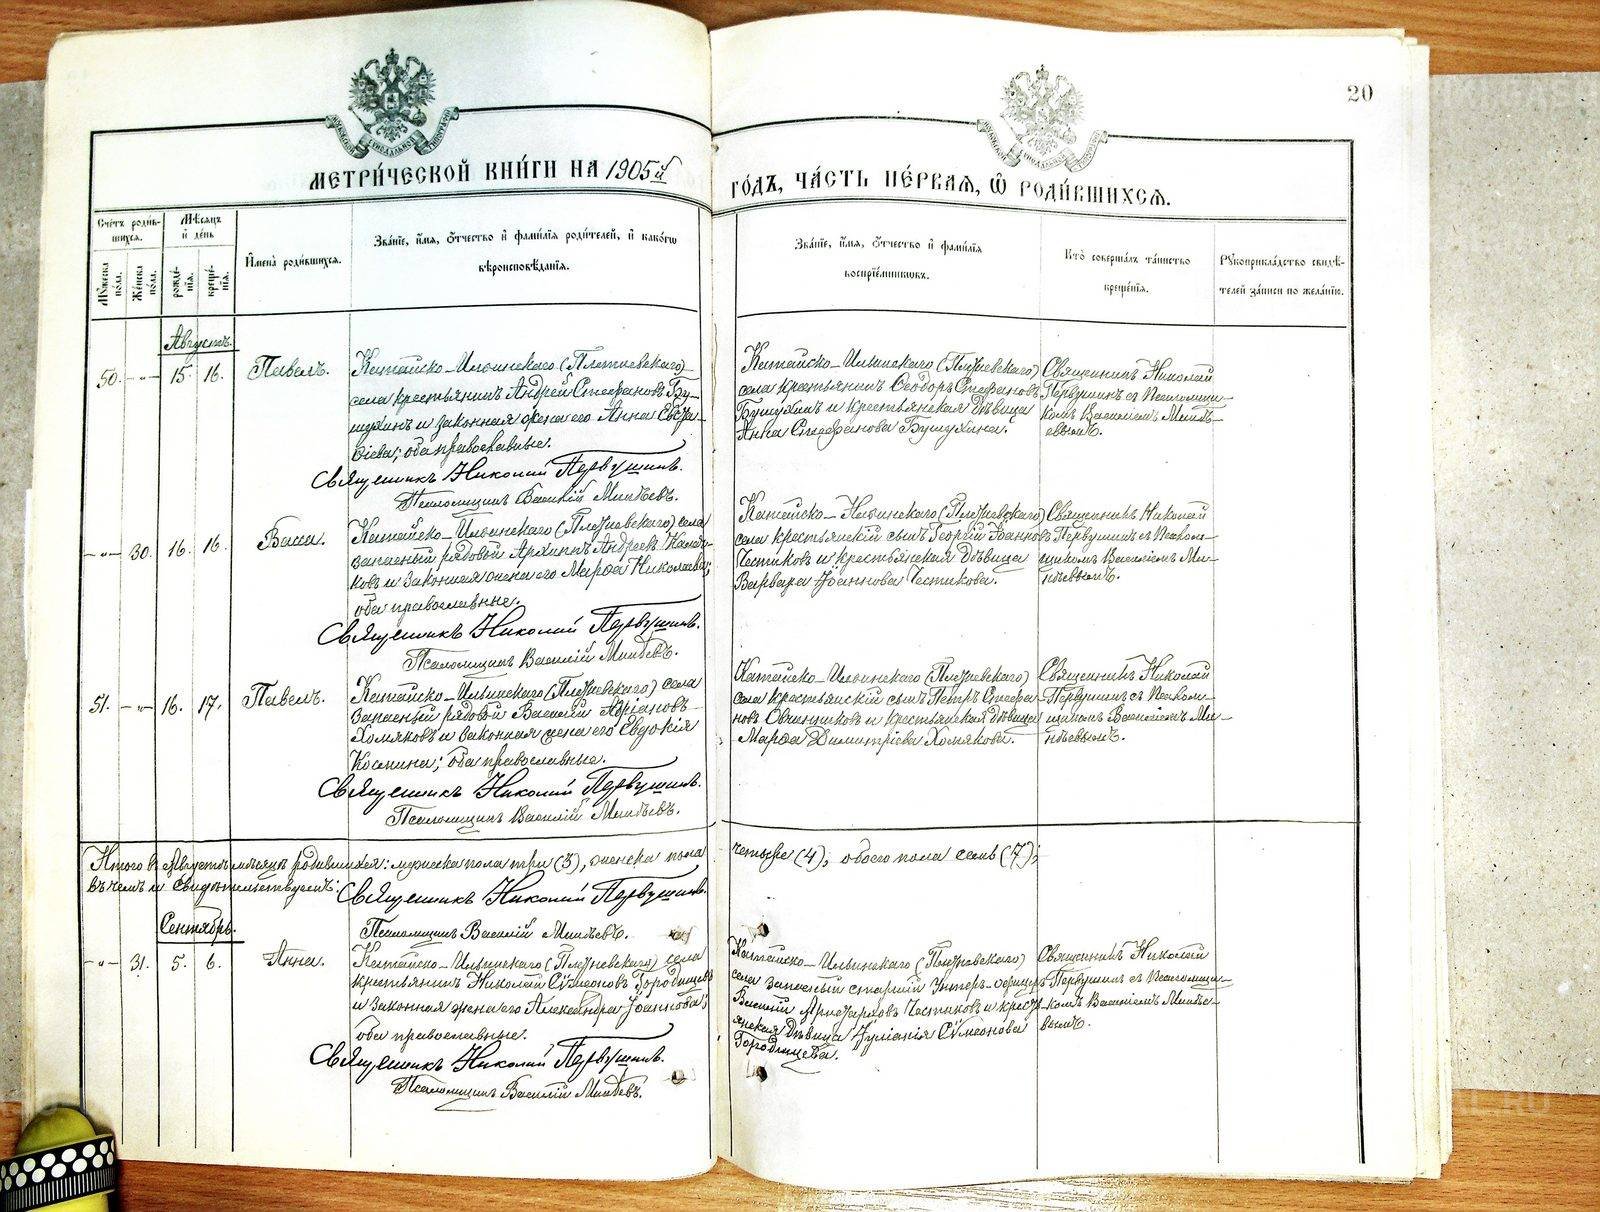 20
МЕТРИ́ЧЕСКОЙ КНИ́ГИ НА 1905й
ГО́ДЪ, ЧА́СТЬ ПЕ́РВАЯ, Ѡ РОДИ́ВШИХСЯ.
Сче́тъ роди́в-
шихся.
Му́жеска по́ла.
Же́нска по́ла.
Мѣ́сяцъ
и де́нь
рожде́нія.
креще́нія.
Имена̀ роди́вшихся.
Зва́ніе, и́мя, о́тчество и фами́лія роди́телей, и како́гѡ
вѣроисповѣ́данія.
Зва́ніе, и́мя, о́тчество и фами́лія
воспріе́мниковъ.
Кто̀ соверша́лъ та́инство
креще́нія.
Рукоприкла́дство свидѣ́-
телей за́писи по жела́нію.
Августъ.
50. -„- 15. 16. Павелъ.
Катайско-Ильинскаго (Плотневскаго)
села крестьянинъ Андрей Стефановъ Бу-
шухинъ и законная жена его Анна
оба православные.
Священникъ Николай Первушинъ.
Псаломщикъ Василій
Катайско-Ильинскаго
села крестьянинъ Ѳеодоръ Стефановъ
и крестьянская дѣвица
Анна Стефанова
Священникъ Николай
Первушинъ съ Псаломщи-
комъ Василіемъ
-„- 30. 16. 16. Васса.
Катайско-Ильинскаго села
запасный рядовой Архиппъ Андреевъ
и законная жена его Марѳа Николаева;
оба православные.
Священникъ Николай Первушинъ.
Псаломщикъ Василій
Катайско-Ильинскаго
села крестьянскій сынъ Георгій Іоанновъ
Честиковъ и крестьянская дѣвица
Варвара Іоаннова Честикова.
Священникъ Николай
Первушинъ съ Псалом-
щикомъ Василіемъ
51. -„- 16. 17. Павелъ.
Катайско-Ильинскаго села
запасный рядовой Василій Адріановъ
Хомяковъ и законная жена его Евдокія
Космина; оба православные.
Священникъ Николай Первушинъ.
Псаломщикъ Василій
Катайско-Ильинскаго
села крестьянскій сынъ Петръ Стефа-
новъ Овчинниковъ и крестьянская дѣвица
Марѳа Димитріева Хомякова.
Священникъ Николай
Первушинъ съ Псалом-
щикомъ Василіемъ
Итого въ Августѣ мѣсяцѣ родившихся: мужеска пола три (3), женска пола
четыре (4), обоего пола семь (7);
въ чемъ и свидѣтельствуемъ: Священникъ Николай Первушинъ.
Псаломщикъ Василій
Сентябрь.
-„- 31. 5. 6. Анна.
Катайско-Ильинскаго села
крестьянинъ Николай Сѷмеоновъ Городищевъ
и законная жена его Александра Іоаннова;
оба православные.
Священникъ Николай Первушинъ.
Псаломщикъ Василій
Катайско-Ильинскаго
села запасный старшій Унтеръ-офицеръ
Василій Аристарховъ Честиковъ и кресть-
янская дѣвица Іуліанія Сѷмеонова
Городищева.
Священникъ Николай
Первушинъ съ Псаломщи-
комъ Василіемъ